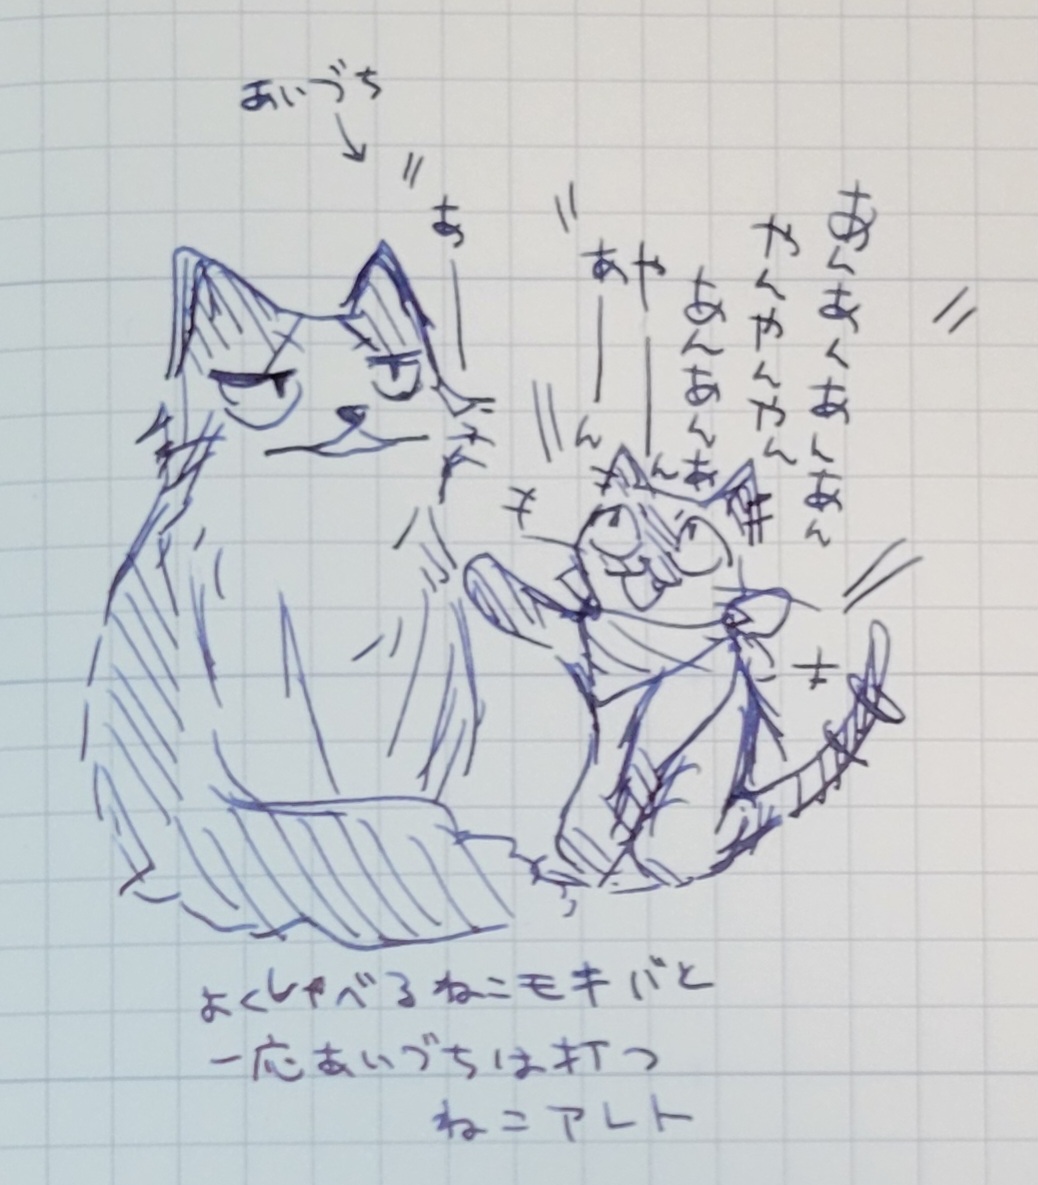 あいづち
あー
あんあんあんあん
やんやんやん
あんあんあ
やーん
あーん
よくしゃべるねこモキバと
一応あいづちは打つ
ねこアレト